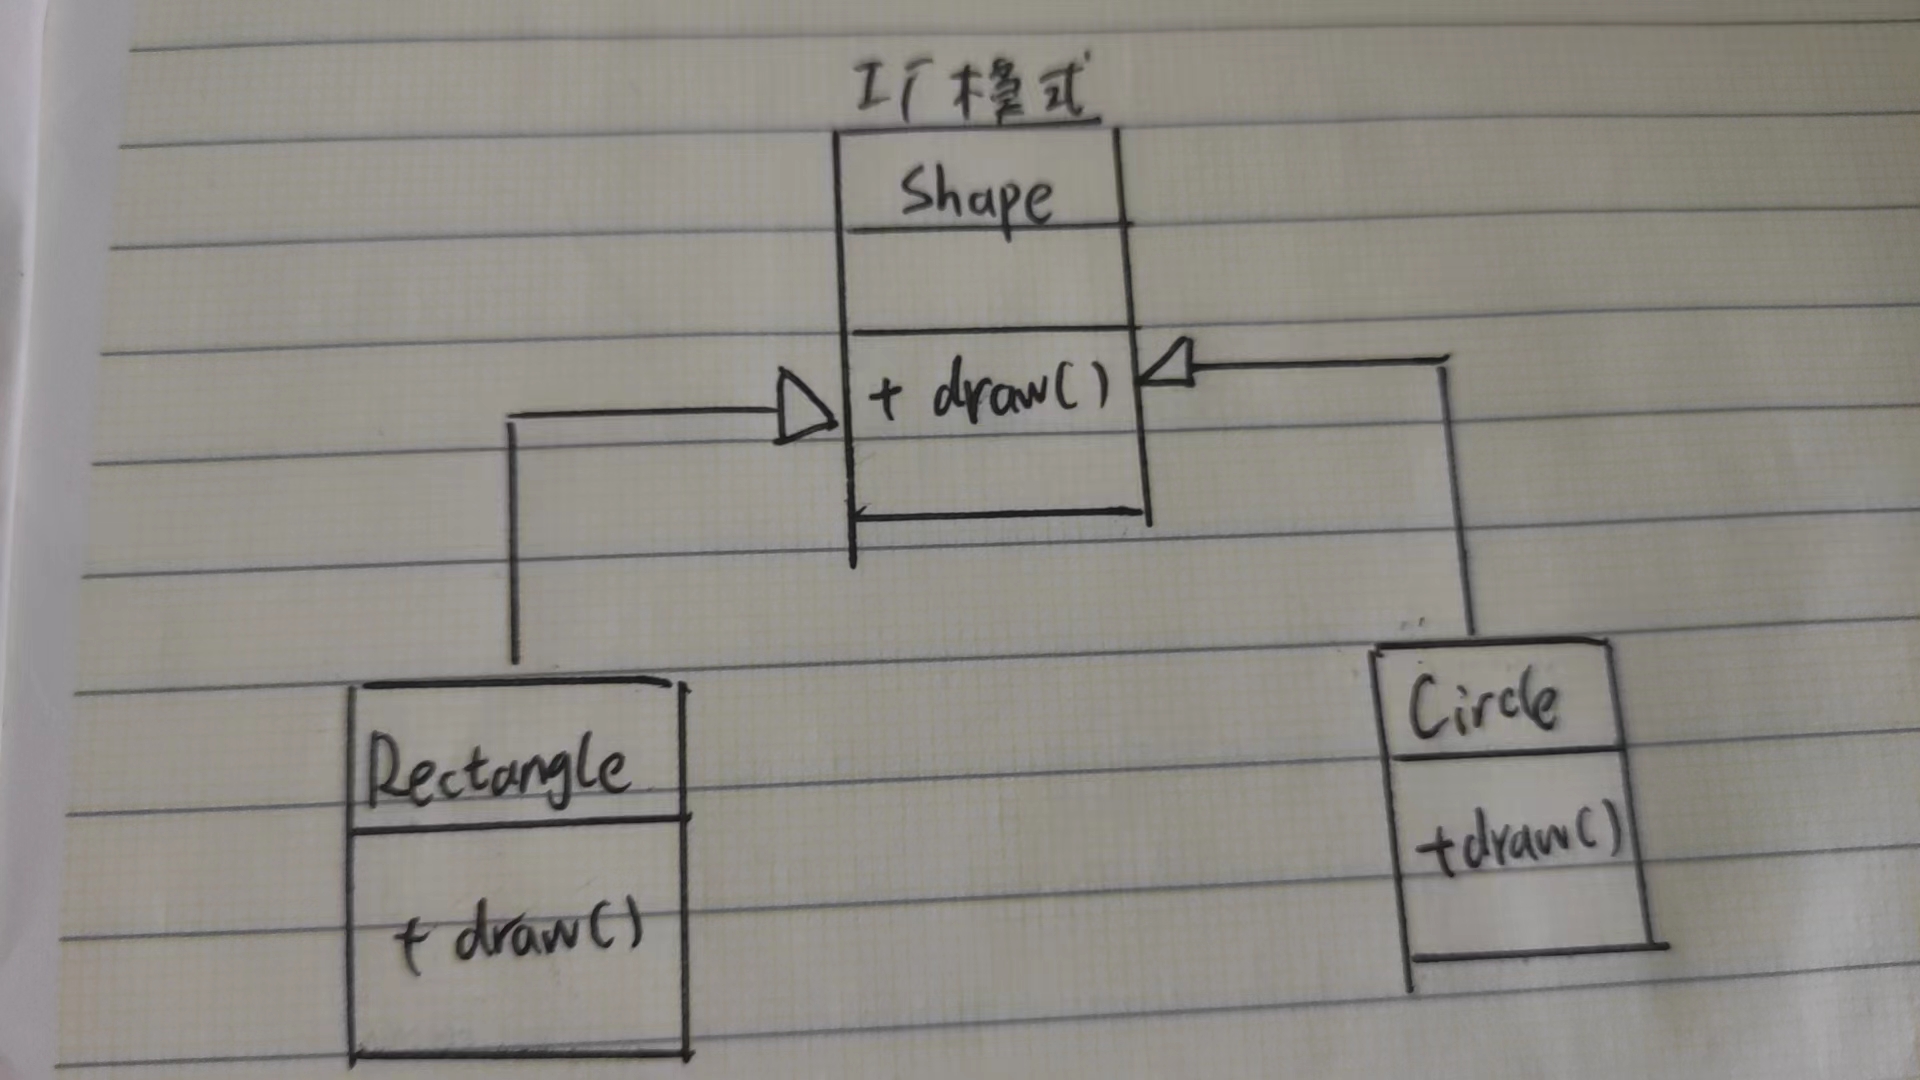 工厂模式
Shape
+ draw()
Rectangle
+ draw()
Circle
+draw()